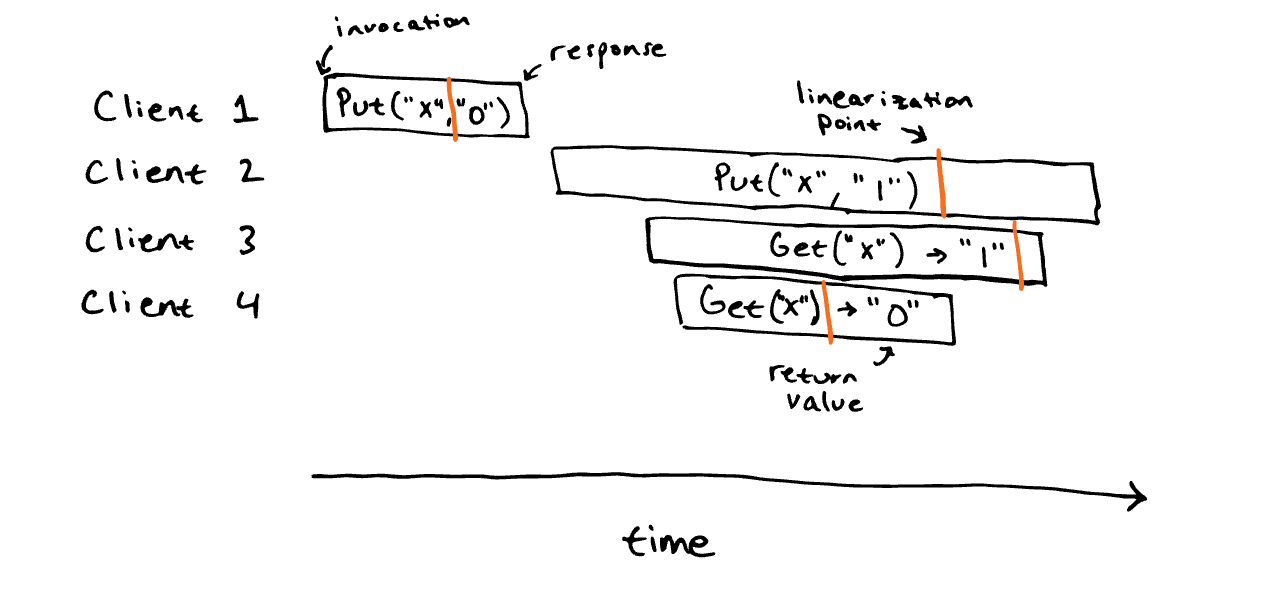 invocation
response
Client 1
Put("x", "0")
linearization
point
Client 2
Put("x", "1")
Client 3
Get("x") → "1"
Client 4
Get("x") → "0"
return
value
time